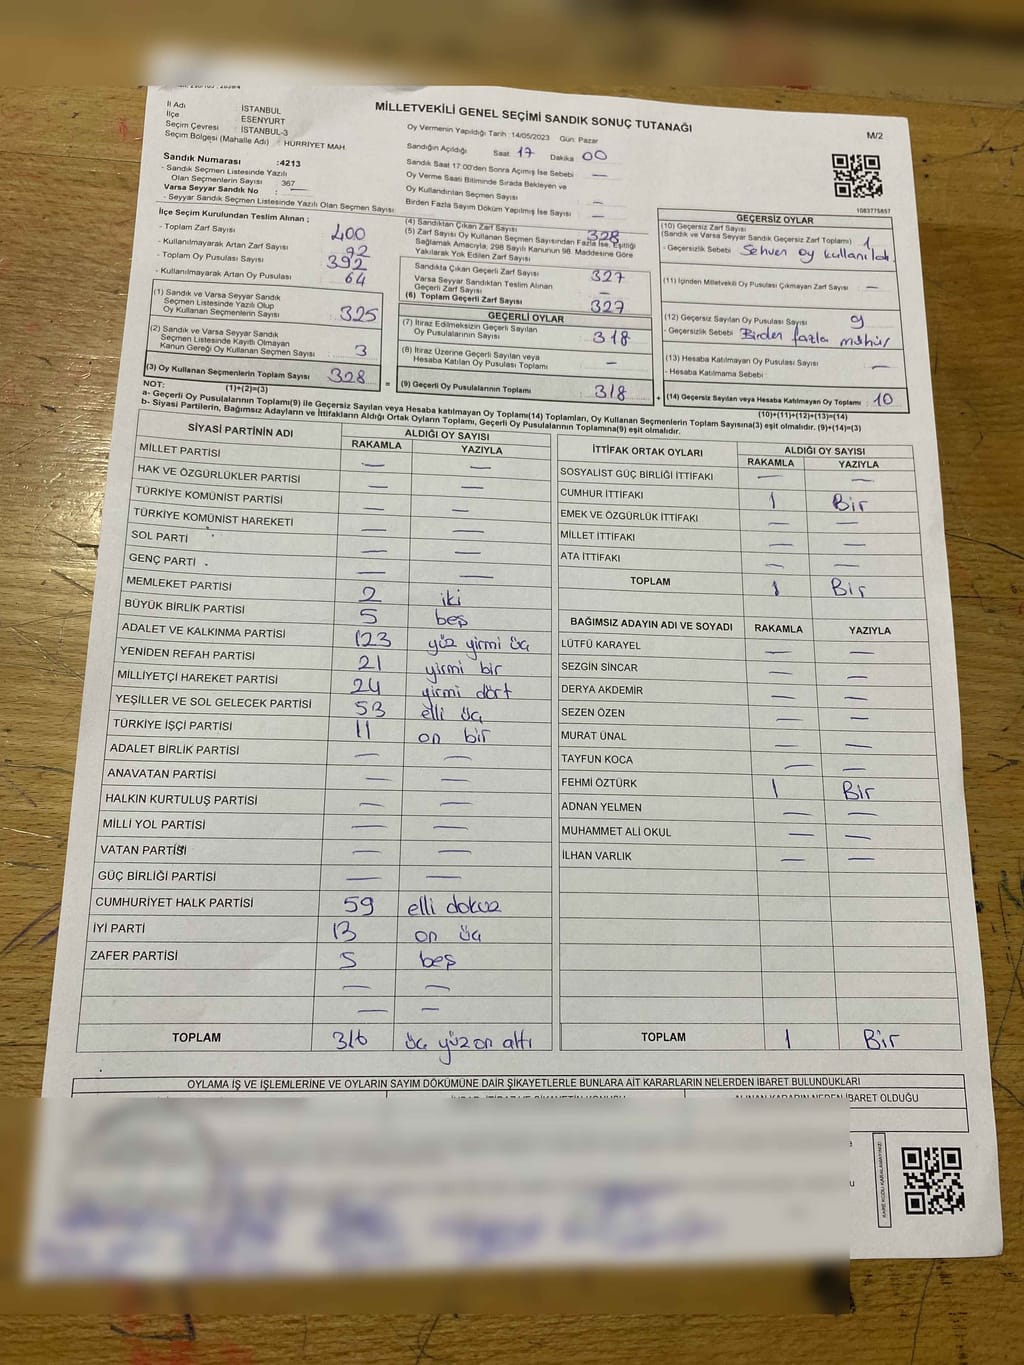 MİLLETVEKİLİ GENEL SEÇİMİ SANDIK SONUÇ TUTANAĞI
M/2
İl Adı İSTANBUL
İlçe ESENYURT
Seçim Çevresi : İSTANBUL-3
Seçim Bölgesi (Mahalle Adı) : HÜRRİYET MAH.
Sandık Numarası :4213
- Sandık Seçmen Listesinde Yazılı
Olan Seçmenlerin Sayısı 367
Varsa Seyyar Sandık No : —
- Seyyar Sandık Seçmen Listesinde Yazılı Olan Seçmen Sayısı
Oy Vermenin Yapıldığı Tarih :14/05/2023 Gün: Pazar
Sandığın Açıldığı Saat 17 Dakika 00
Sandık Saat 17:00'den Sonra Açılmış İse Sebebi —
Oy Verme Saati Bitiminde Sırada Bekleyen ve
Oy Kullandırılan Seçmen Sayısı —
Birden Fazla Sayım Döküm Yapılmış İse Sayısı —
1083775857
İlçe Seçim Kurulundan Teslim Alınan ;
- Toplam Zarf Sayısı 400
- Kullanılmayarak Artan Zarf Sayısı 72
- Toplam Oy Pusulası Sayısı 392
- Kullanılmayarak Artan Oy Pusulası 64
(1) Sandık ve Varsa Seyyar Sandık
Seçmen Listesinde Yazılı Olup
Oy Kullanan Seçmenlerin Sayısı 325
(2) Sandık ve Varsa Seyyar Sandık
Seçmen Listesinde Kayıtlı Olmayan
Kanun Gereği Oy Kullanan Seçmen Sayısı 3
(3) Oy Kullanan Seçmenlerin Toplam Sayısı 328
(1)+(2)=(3)
(4) Sandıktan Çıkan Zarf Sayısı 328
(5) Zarf Sayısı Oy Kullanan Seçmen Sayısından Fazla İse, Eşitliği
Sağlamak Amacıyla, 298 Sayılı Kanunun 98. Maddesine Göre
Yakılarak Yok Edilen Zarf Sayısı —
Sandıkta Çıkan Geçerli Zarf Sayısı 327
Varsa Seyyar Sandıktan Teslim Alınan
Geçerli Zarf Sayısı —
(6) Toplam Geçerli Zarf Sayısı 327
GEÇERLİ OYLAR
(7) İtiraz Edilmeksizin Geçerli Sayılan
Oy Pusulalarının Sayısı 318
(8) İtiraz Üzerine Geçerli Sayılan veya
Hesaba Katılan Oy Pusulası Toplamı —
= (9) Geçerli Oy Pusulalarının Toplamı 318
GEÇERSİZ OYLAR
(10) Geçersiz Zarf Sayısı
(Sandık ve Varsa Seyyar Sandık Geçersiz Zarf Toplamı) 1
- Geçersizlik Sebebi Sehven oy
(11) İçinden Milletvekili Oy Pusulası Çıkmayan Zarf Sayısı : —
(12) Geçersiz Sayılan Oy Pusulası Sayısı 9
- Geçersizlik Sebebi Birden fazla mühür
(13) Hesaba Katılmayan Oy Pusulası Sayısı —
- Hesaba Katılmama Sebebi
+ (14) Geçersiz Sayılan veya Hesaba Katılmayan Oy Toplamı : 10
(10)+(11)+(12)+(13)=(14)
NOT:
a- Geçerli Oy Pusulalarının Toplamı(9) ile Geçersiz Sayılan veya Hesaba katılmayan Oy Toplamı(14) Toplamları, Oy Kullanan Seçmenlerin Toplam Sayısına(3) eşit olmalıdır. (9)+(14)=(3)
b- Siyasi Partilerin, Bağımsız Adayların ve İttifakların Aldığı Ortak Oyların Toplamı, Geçerli Oy Pusulalarının Toplamına(9) eşit olmalıdır.
SİYASİ PARTİNİN ADI ALDIĞI OY SAYISI
RAKAMLA YAZIYLA
MİLLET PARTİSİ — —
HAK VE ÖZGÜRLÜKLER PARTİSİ — —
TÜRKİYE KOMÜNİST PARTİSİ — —
TÜRKİYE KOMÜNİST HAREKETİ — —
SOL PARTİ — —
GENÇ PARTİ — —
MEMLEKET PARTİSİ 2 iki
BÜYÜK BİRLİK PARTİSİ 5 beş
ADALET VE KALKINMA PARTİSİ 123 yüz yirmi üç
YENİDEN REFAH PARTİSİ 21 yirmi bir
MİLLİYETÇİ HAREKET PARTİSİ 24 yirmi dört
YEŞİLLER VE SOL GELECEK PARTİSİ 53 elli üç
TÜRKİYE İŞÇİ PARTİSİ 11 on bir
ADALET BİRLİK PARTİSİ — —
ANAVATAN PARTİSİ — —
HALKIN KURTULUŞ PARTİSİ — —
MİLLİ YOL PARTİSİ — —
VATAN PARTİSİ — —
GÜÇ BİRLİĞİ PARTİSİ — —
CUMHURİYET HALK PARTİSİ 59 elli dokuz
İYİ PARTİ 13 on üç
ZAFER PARTİSİ 5 beş
— —
— —
TOPLAM 316 üç yüz on altı
İTTİFAK ORTAK OYLARI ALDIĞI OY SAYISI
RAKAMLA YAZIYLA
SOSYALİST GÜÇ BİRLİĞİ İTTİFAKI — —
CUMHUR İTTİFAKI 1 Bir
EMEK VE ÖZGÜRLÜK İTTİFAKI — —
MİLLET İTTİFAKI — —
ATA İTTİFAKI — —
TOPLAM 1 Bir
BAĞIMSIZ ADAYIN ADI VE SOYADI RAKAMLA YAZIYLA
LÜTFÜ KARAYEL — —
SEZGİN SİNCAR — —
DERYA AKDEMİR — —
SEZEN ÖZEN — —
MURAT ÜNAL — —
TAYFUN KOCA — —
FEHMİ ÖZTÜRK 1 Bir
ADNAN YELMEN — —
MUHAMMET ALİ OKUL — —
İLHAN VARLIK — —
TOPLAM 1 Bir
OYLAMA İŞ VE İŞLEMLERİNE VE OYLARIN SAYIM DÖKÜMÜNE DAİR ŞİKAYETLERLE BUNLARA AİT KARARLARIN NELERDEN İBARET BULUNDUKLARI
ALINAN KARARIN NEDEN İBARET OLDUĞU